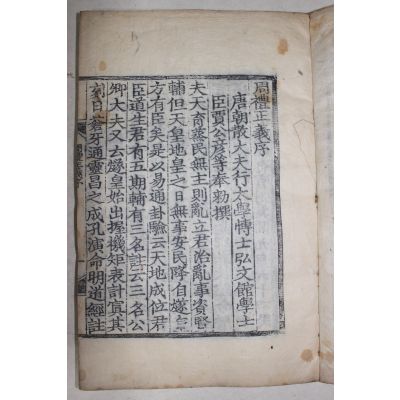 周禮正義序
唐朝散大夫行太學博士弘文館學士
臣賈公彦等奉勑撰
夫天育蒸民無主則亂立君治亂事資賢
輔但天皇地皇之日無事安民降自燧皇
方有臣矣是以易通卦驗云天地成位君
臣道生君有五期輔有三名註云三名公
卿大夫又云燧皇始出握機矩表計寘其
刻日蒼牙通靈昌之成孔演命明道經註